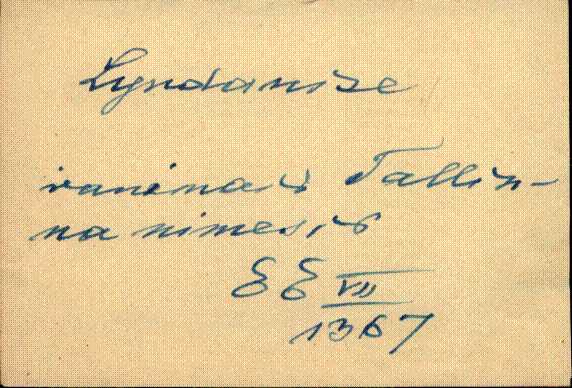 Lyndanise
vanimaid Tallin-
na nimesid
EE VII
1367